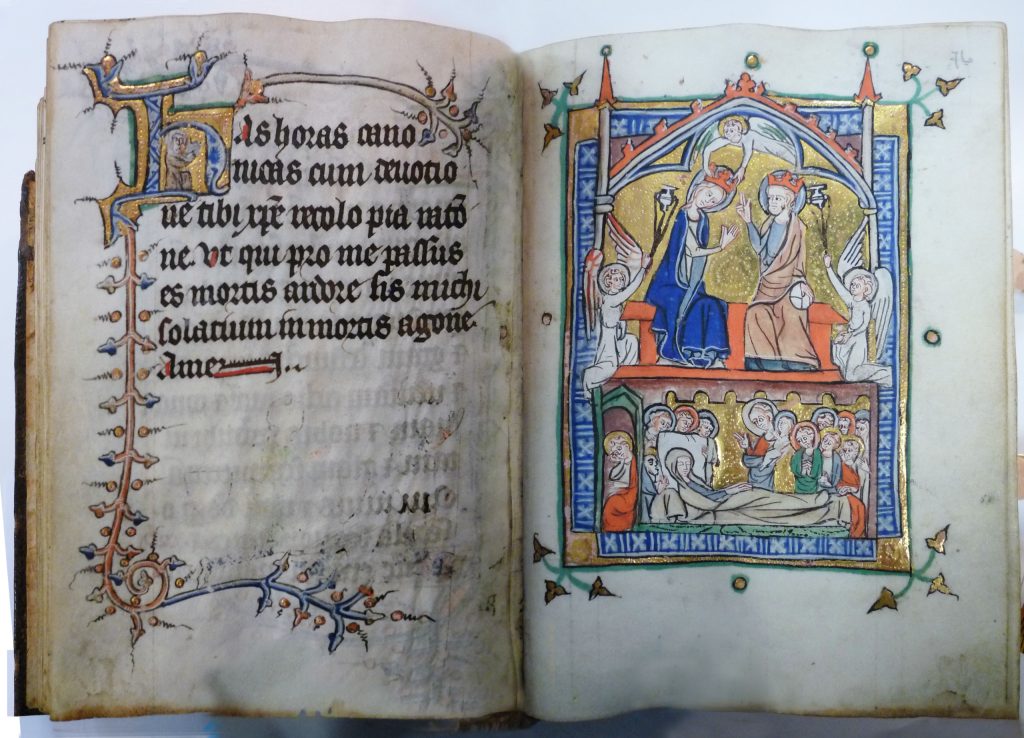 has horas cano
nicas cum deuotio
ne tibi xpe recolo pia racō
ne. Vt qui pro me passus
es mortis ardore sis michi
solacium in mortis agone.
Amen